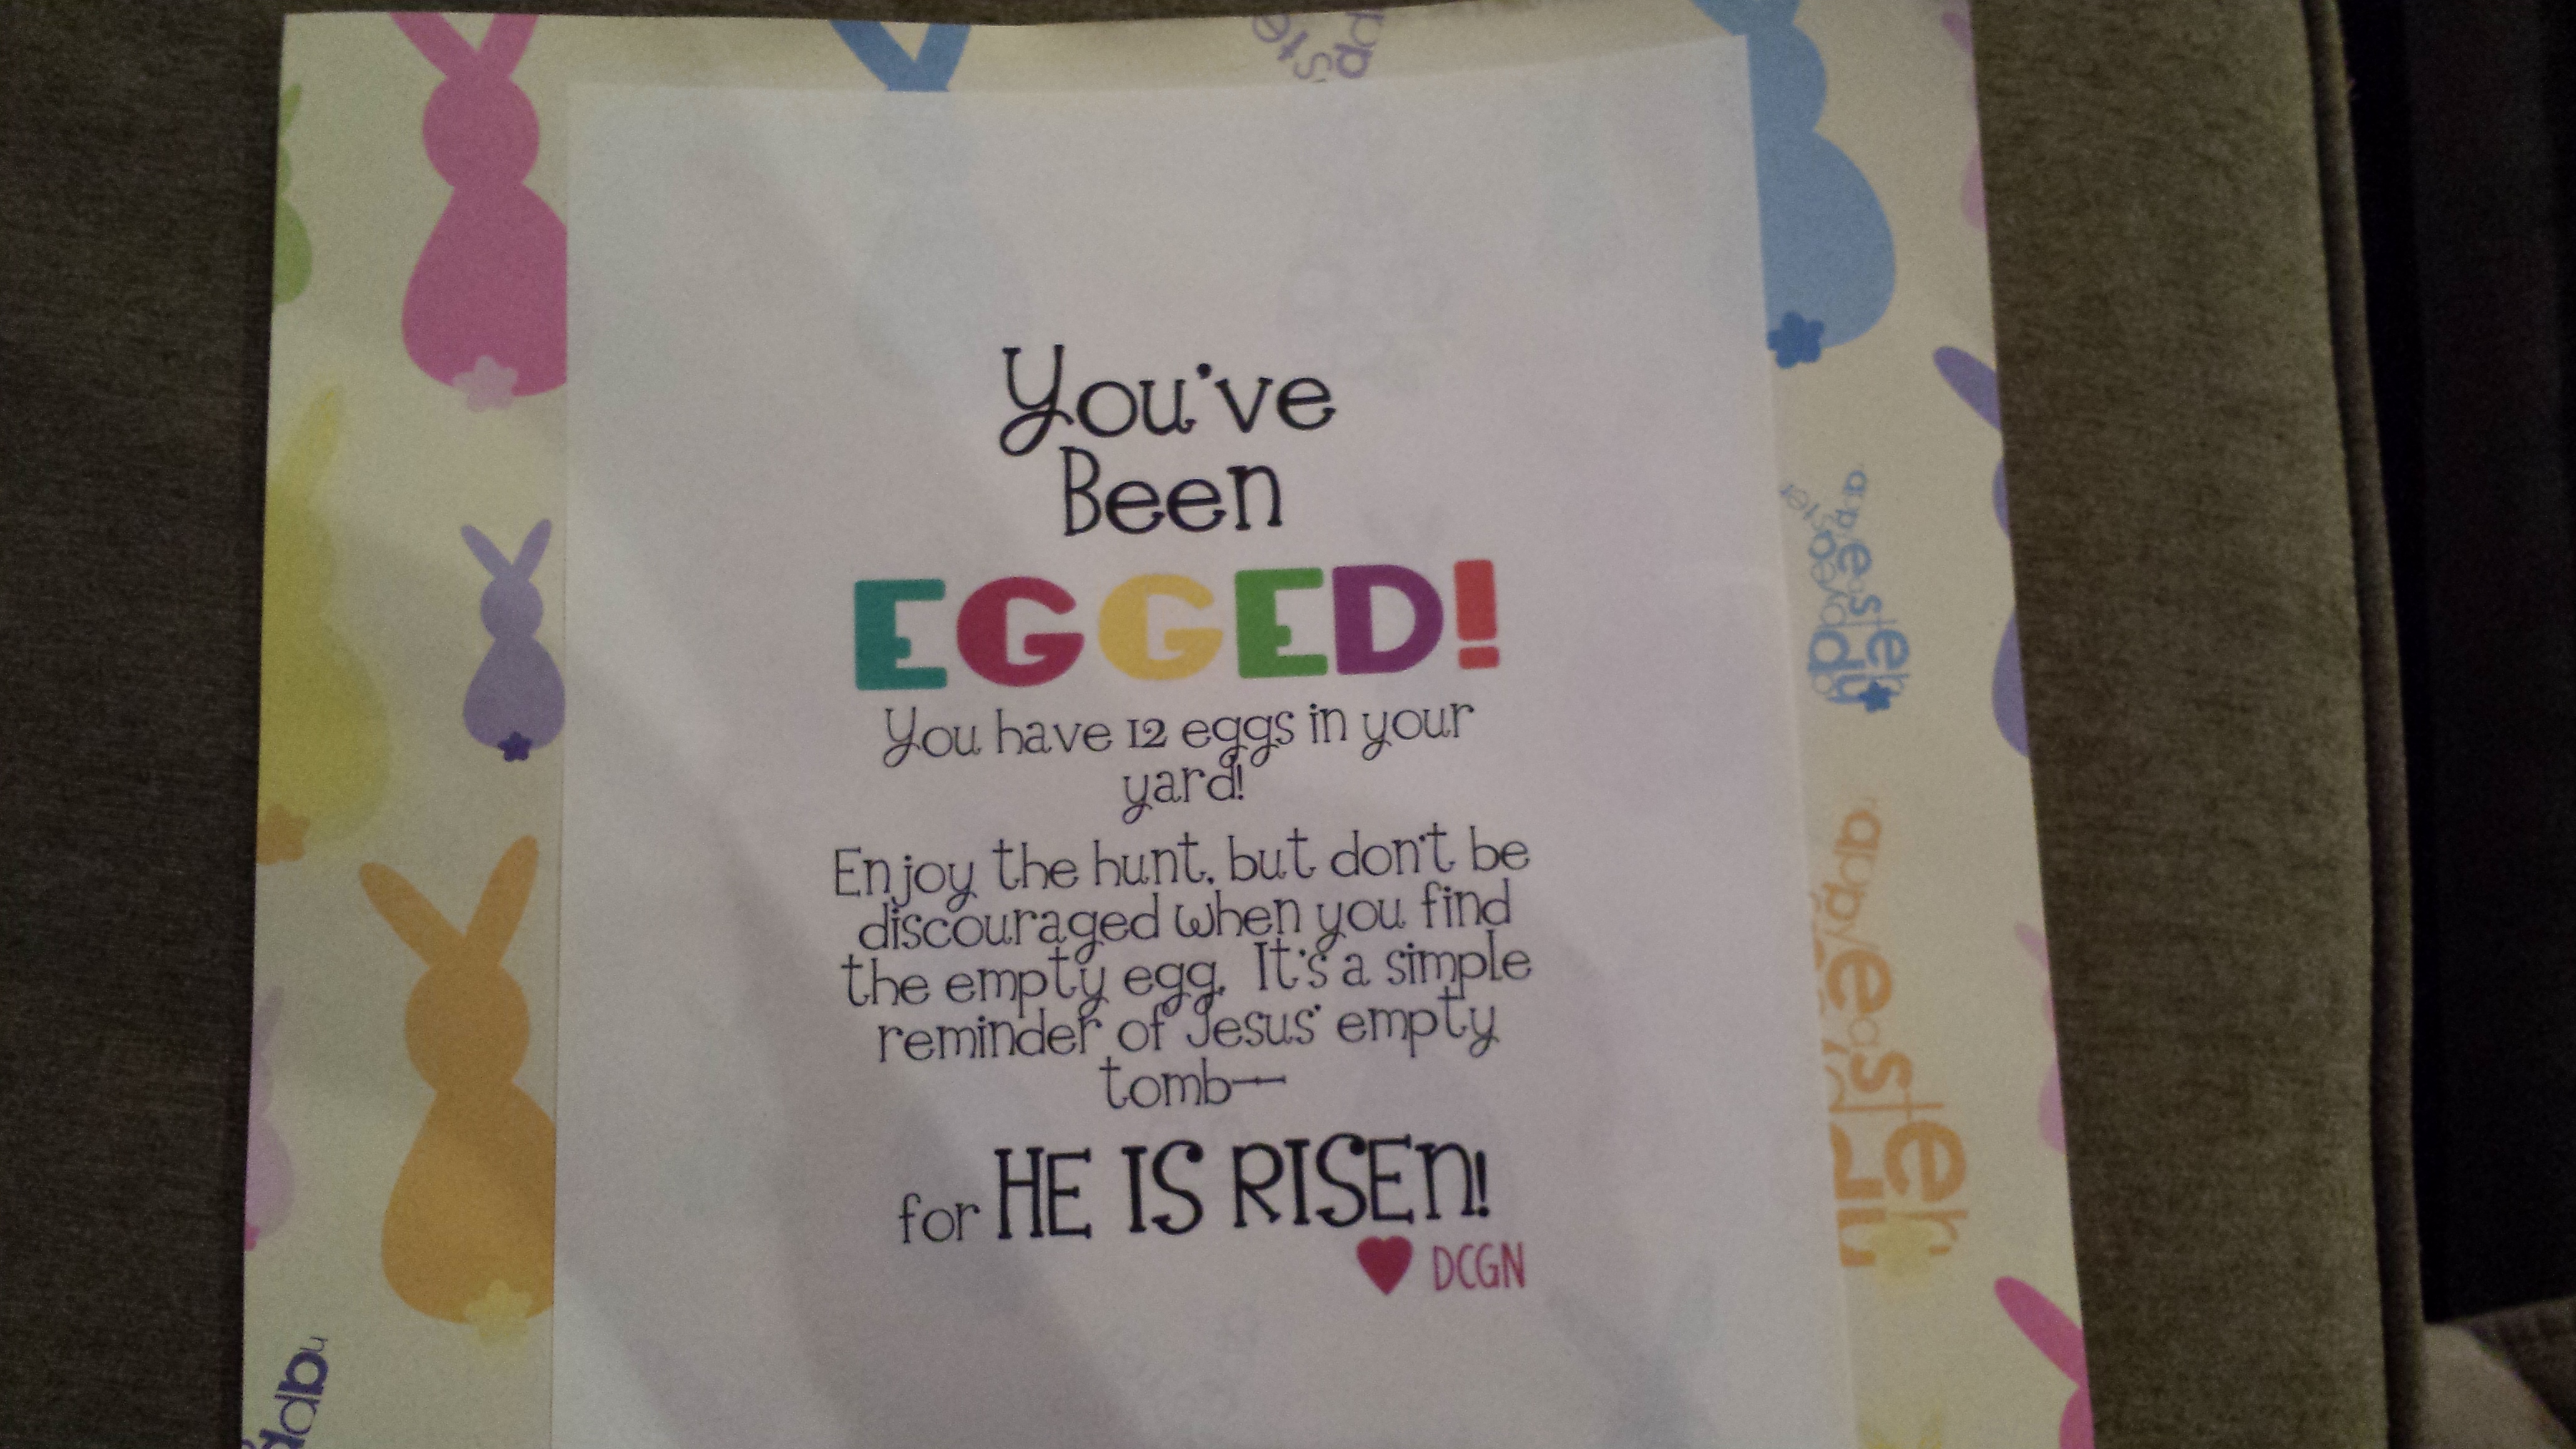 You've
Been
EGGED!
You have 12 eggs in your
yard!
Enjoy the hunt, but don't be
discouraged when you find
the empty egg. It's a simple
reminder of Jesus' empty
tomb—
for HE IS RISEN!
DCGN